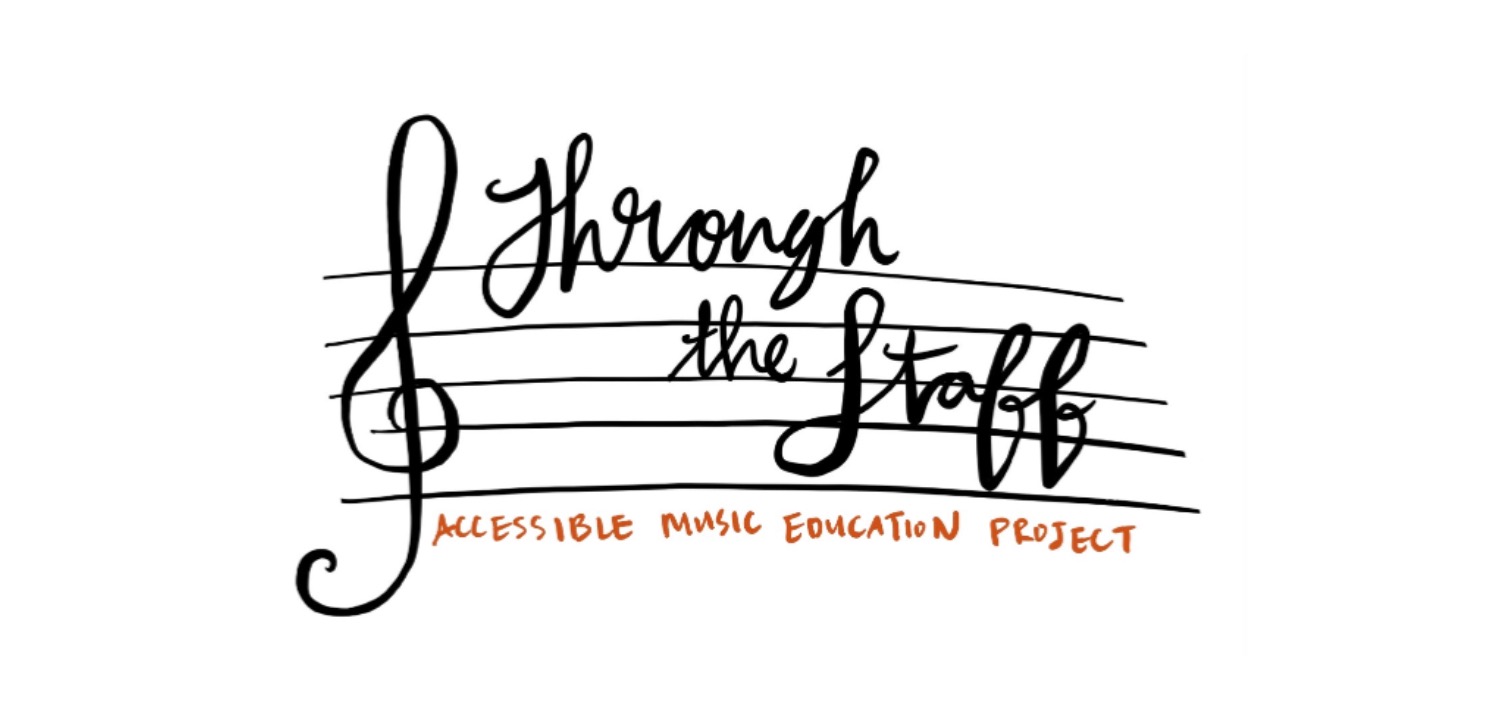 Through
the Staff
ACCESSIBLE MUSIC EDUCATION PROJECT